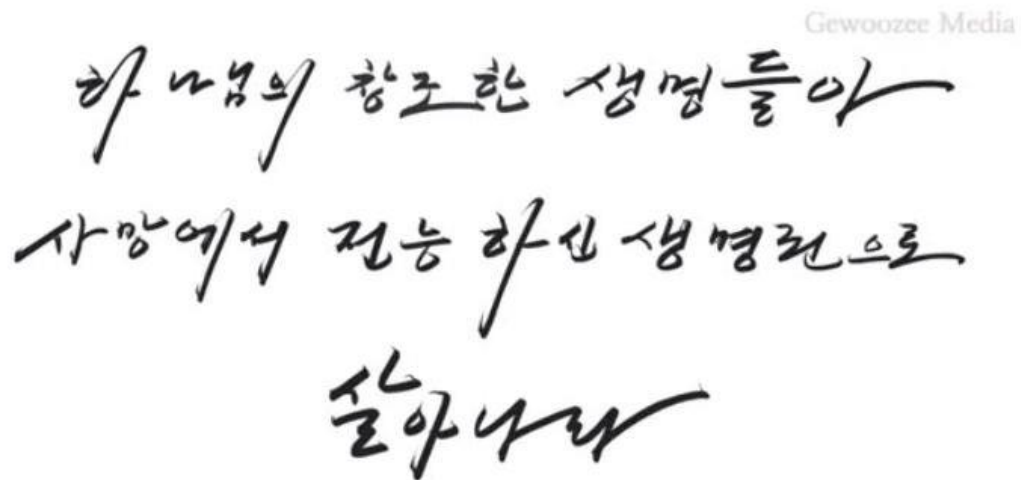 Gewoozee Media
하나님의 창조한 생명들아
사망에서 전능하신 생명련으로
살아나라